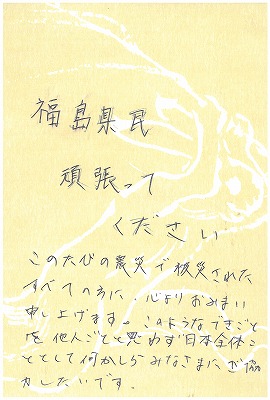 福島県民
頑張って
ください
このたびの震災で被災された
すべての方に、心よりおみまい
申し上げます。このようなできごと
を他人ごとと思わず日本全体こ
ととして何かしらみなさまにご協
力したいです。